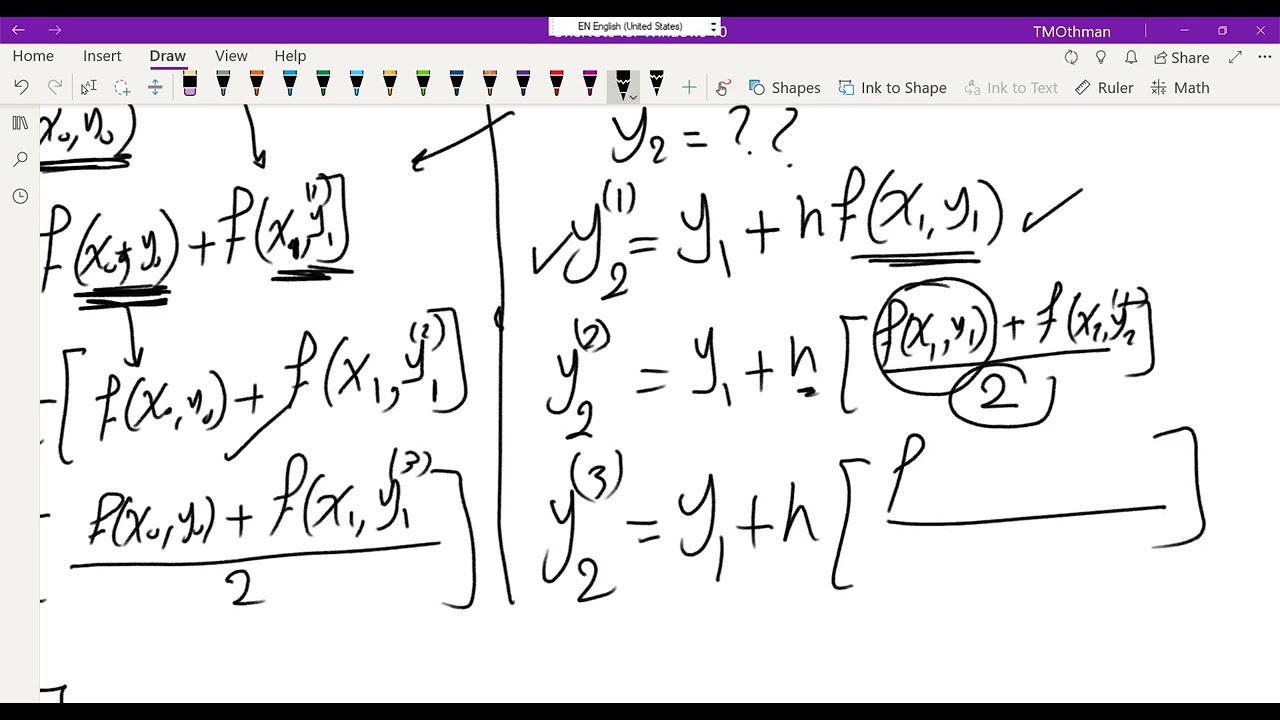 EN English (United States)
TMOthman
Home Insert Draw View Help
Share
Shapes Ink to Shape Ink to Text Ruler Math
x₀, y₀)
f(x₀, y₀) + f(x₁, y₁⁽¹⁾]
[f(x₀, y₀) + f(x₁, y₁⁽²⁾]
f(x₀, y₀) + f(x₁, y₁⁽³⁾]
2
y₂ = ??
✓ y₂⁽¹⁾ = y₁ + h f(x₁, y₁) ✓
y₂⁽²⁾ = y₁ + h [f(x₁, y₁) + f(x₂, y₂⁽¹⁾]
2
y₂⁽³⁾ = y₁ + h [f ]